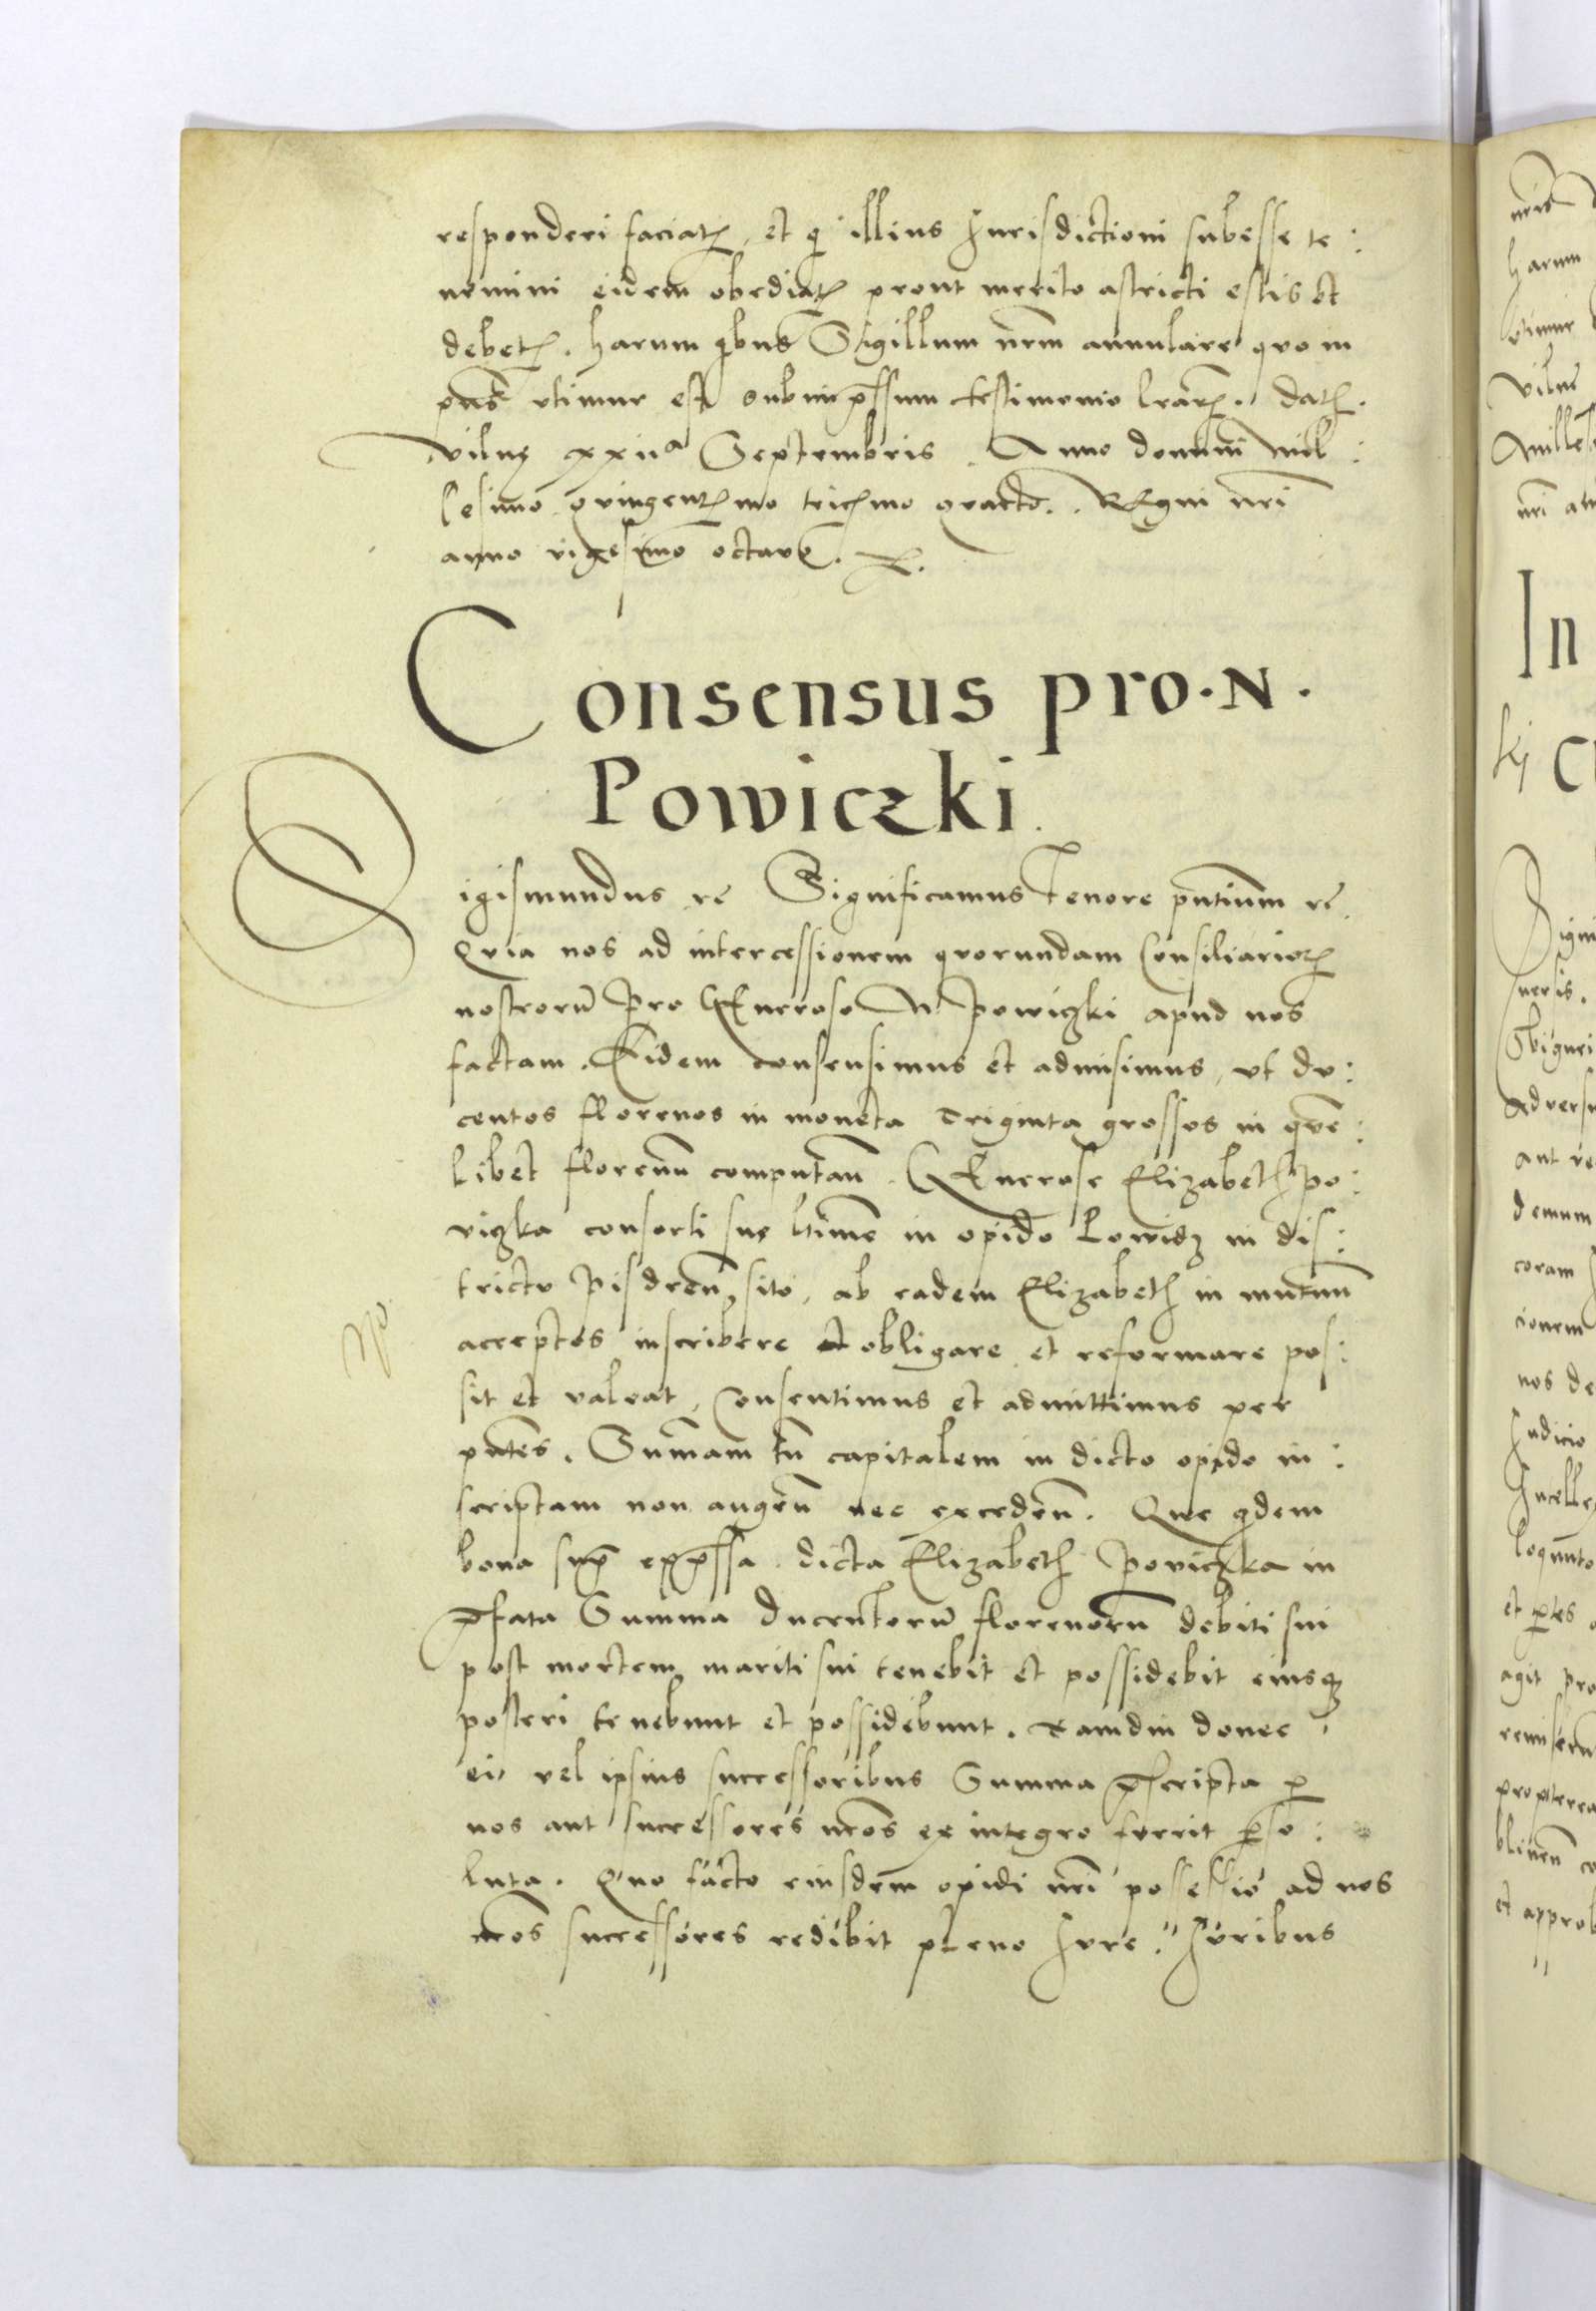 responderi faciatꝭ, et qͥ illius Jurisdictioni subesse te:
nemini eidem obediatꝭ prout merito astricti estis et
debetꝭ. harum qͥbus Sigillum nr̄m annulare quo in
pn̄s vtimur est subimp̄ssum testimonio lr̄arꝝ. datꝭ.
vilnę xxiiᵃ Septembris. Anno domini mil:
lesimo quingentꝭmo tricꝭmo quarto. Regni nr̄i
anno vigesimo octauo.
Consensus pro. N.
Powiczki.
Sigismundus rē Significamus Tenore pn̄tium rē.
Quia nos ad intercessionem quorundam Consiliariorꝝ
nostrorū pro Generoso N powiczki apud nos
factam. Eidem consensimus et admisimus, vt du:
centos florenos in moneta triginta grossos in quē:
libet florenū computan̄. Generose Elizabeth po:
viczka consorti suę l̄time in opido Lowidz in dis:
trictu pisdren̄, sito, ab eadem Elizabeth in mutuū
acceptos inscribere et obligare et reformare pos:
sit et valeat, Consentimus et admittimus per
pn̄tes. Sum̄am tn̄ capitalem in dicto opido in:
scriptam non augen̄ nec exceden̄. Que qͥdem
bona supͣ exp̄ssa dicta Elizabeth poviczka in
p̄fata Summa ducentorū florenorū debiti sui
post mortem mariti sui tenebit et possidebit eiusqꝫ
posteri tenebunt et possidebunt. tamdiu donec
ei vel ipsius successoribus Summa p̄scripta ꝑ
nos aut successores nr̄os ex integro fuerit ꝑso:
luta. Quo facto eiusdem opidi nr̄i possessio ad nos
nr̄os successores redibit pleno Jure. Juribus